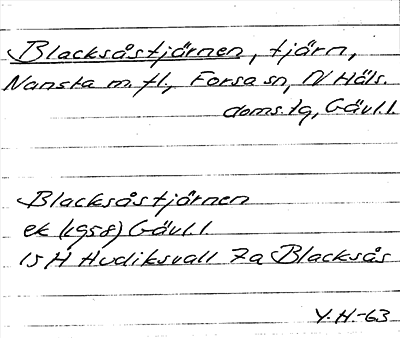 Blacksåstjärnen, tjärn,
Nansta m.fl., Forsa sn, N Häls.
doms.lg, Gävl.l.
Blacksåstjärnen
ek (1958) Gävl.l
15H Hudiksvall 7a Blacksås
Y.H.-63